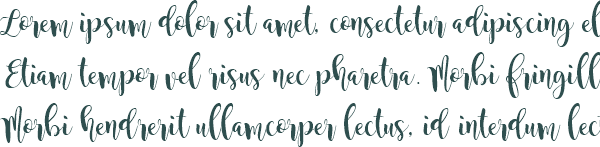 Lorem ipsum dolor sit amet, consectetur adipiscing el
Etiam tempor vel risus nec pharetra. Morbi fringill
Morbi hendrerit ullamcorper lectus, id interdum lect